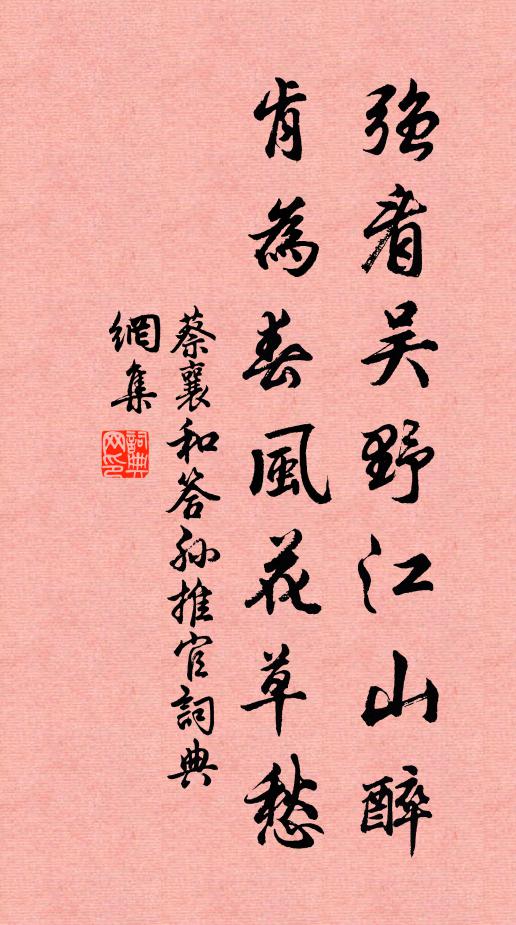 強看吳野江山醉
肯為春風花草愁
蔡襄和答孫推官詞典
網集
詞典
网印